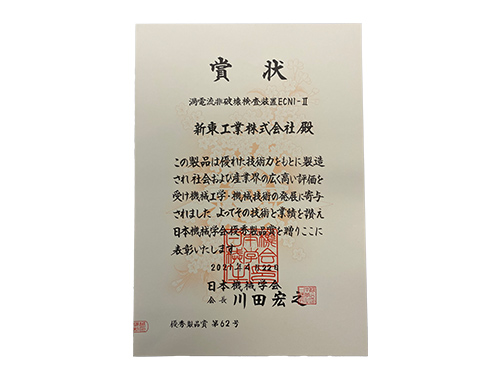 賞状
渦電流非破壊検査装置ECNI-Ⅱ
新東工業株式会社殿
この製品は優れた技術力をもとに製造
され社会および産業界の広く高い評価を
受け機械工学・機械技術の発展に寄与
されました よってその技術と業績を讃え
日本機械学会優秀製品賞を贈りここに
表彰いたします
2021年4月22日
日本機械学会
会長 川田宏之
優秀製品賞 第62号